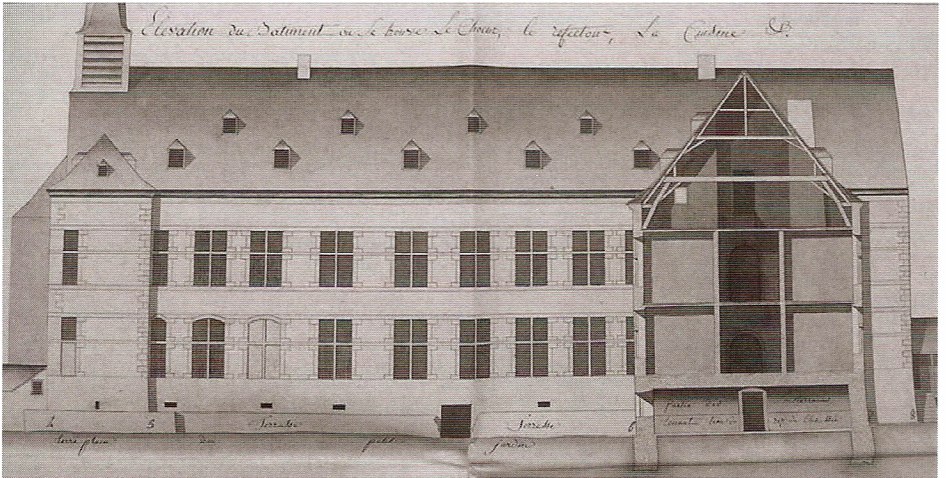 Elevation du Batiment ou se trouve Le Choeur, le refectoir, La Cuisine &c.
4 5 Terrasse Terrasse 6 8
terre plain du petit jardin
partie des